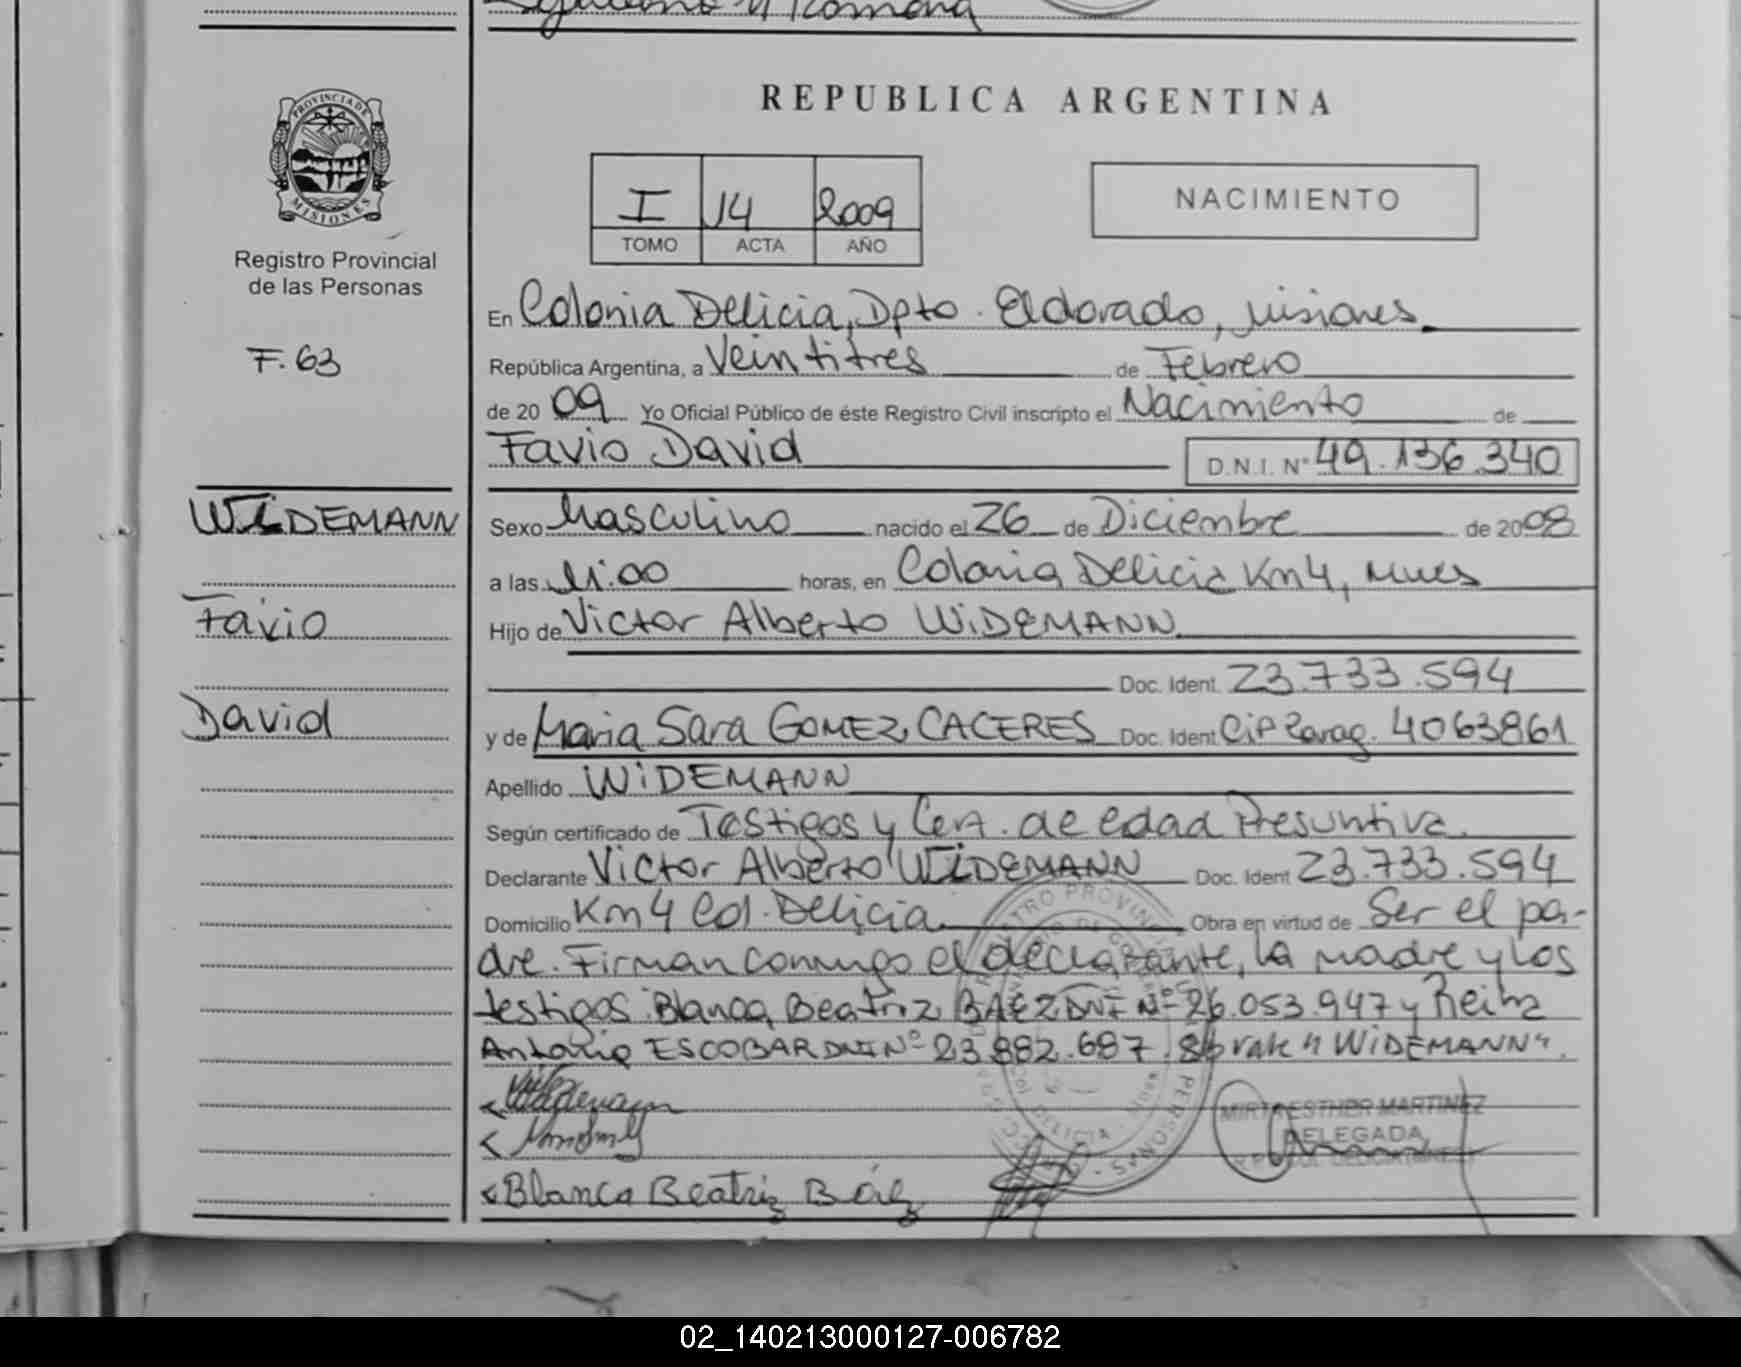 y Romona
REPUBLICA ARGENTINA
PROVINCIA DE
MISIONES
Registro Provincial
de las Personas
F. 63
I 14 2009
TOMO ACTA AÑO
NACIMIENTO
En Colonia Delicia, Dpto. Eldorado, Misiones
República Argentina, a Veintitres de Febrero
de 2009 Yo Oficial Público de éste Registro Civil inscripto el Nacimiento de
Favio David D.N.I. N° 49.136.340
WIDEMANN
Favio
David
Sexo Masculino nacido el 26 de Diciembre de 2008
a las 11:00 horas, en Colonia Delicia Km 4, Mnes
Hijo de Victor Alberto WIDEMANN
Doc. Ident. 23.733.594
y de Maria Sara GOMEZ CACERES Doc. Ident CiParag. 4063861
Apellido WIDEMANN
Según certificado de Testigos y Cert. de edad Presuntiva.
Declarante Victor Alberto WIDEMANN Doc. Ident 23.733.594
Domicilio Km 4 Col. Delicia Obra en virtud de Ser el pa-
dre. Firman conmigo el declarante, la madre y los
testigos Blanca Beatriz BAEZ DNI N° 26.053.947 y
Antonio ESCOBAR DNI N° 23.882.687. S/b vale "WIDEMANN".
Blanca Beatriz Báez
MIRTA ESTHER MARTINEZ
DELEGADA
02_140213000127-006782